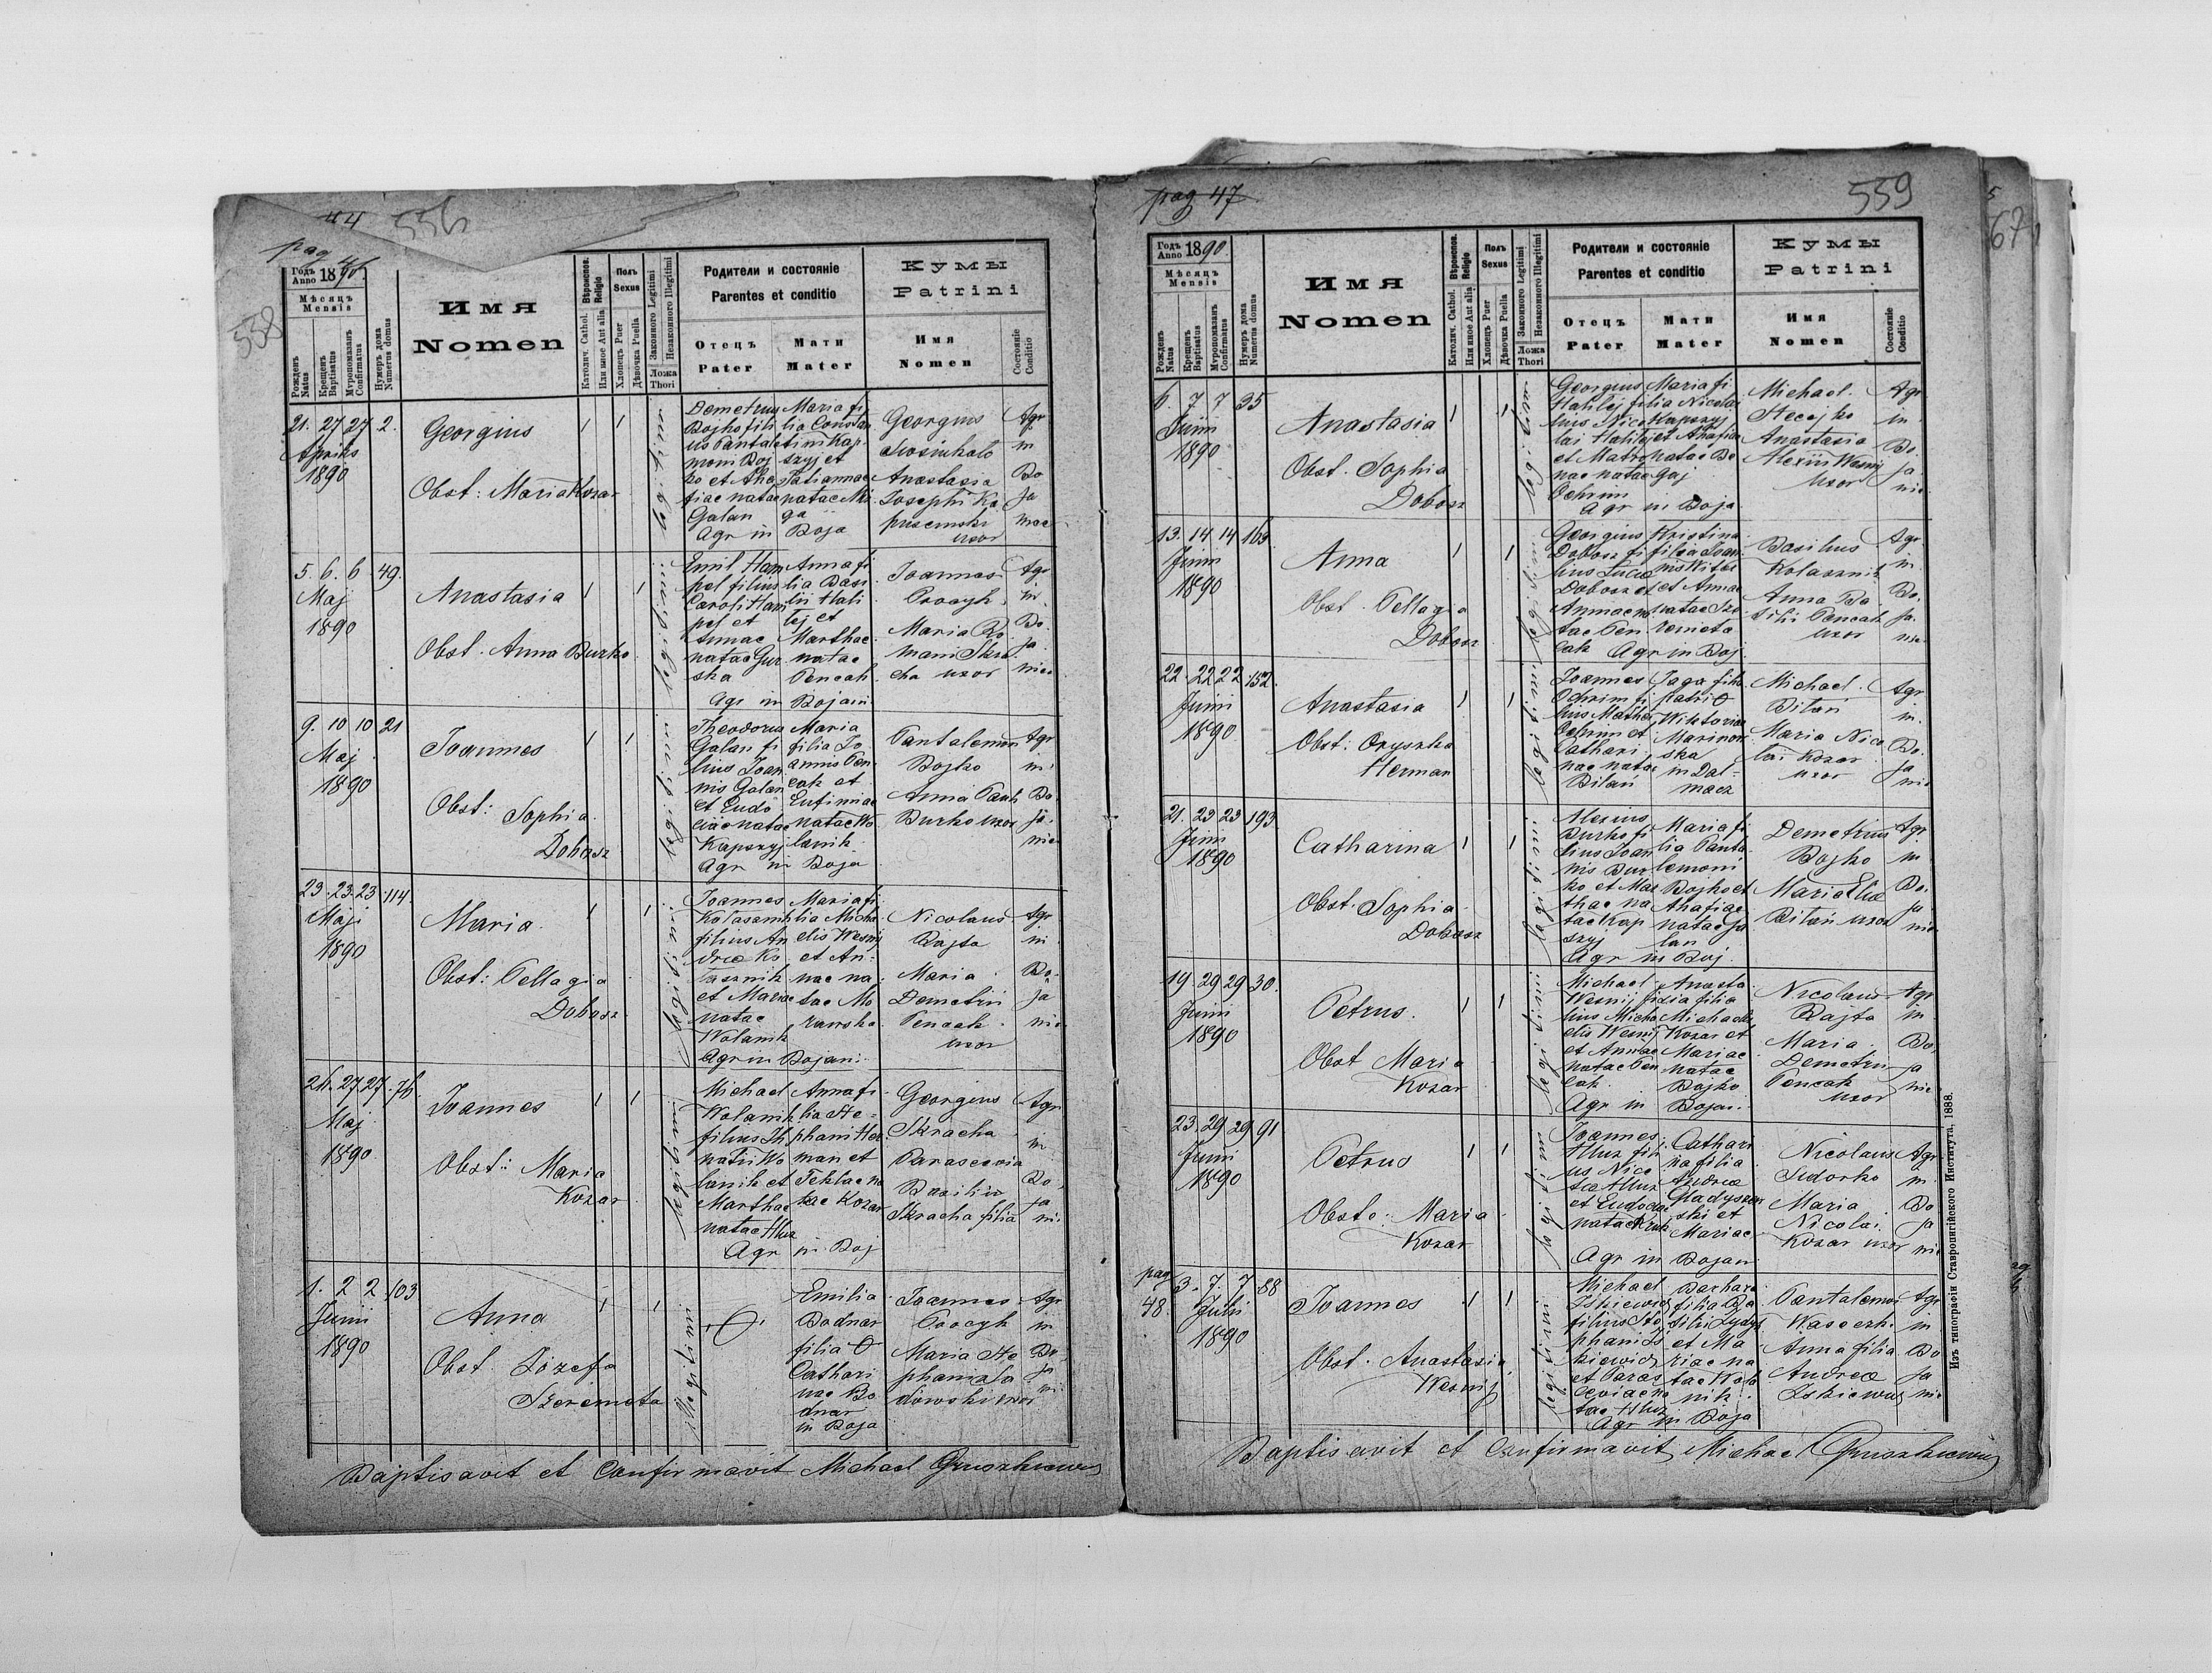 pag 46
44
556
558
Годъ Anno 1890
Мѣсяцъ
Mensis
Рожденъ Natus
Крещенъ Baptisatus
Мѵропомазанъ Confirmatus
Нумеръ дома Numerus domus
Имя
Nomen
Вѣроиспов. Religio
Католич. Cathol.
Или иное Aut alia
Полъ
Sexus
Хлопецъ Puer
Дѣвочка Puella
Законного Legitimi
Незаконного Illegitimi
Ложа
Thori
Родители и состояніе
Parentes et conditio
Отецъ
Pater
Мати
Mater
Кумы
Patrini
Имя
Nomen
Состояніе
Conditio
21. 27 27 2.
Aprilis
1890
Georgius
Obst: Maria Kozar
legitimi
Demetrius
Bojko fili
us Pantale
moni Boj
ko et Aha
fiae natae
Galan
Maria fi
lia Constan
tini Kap
szyj et
Tatiannae
natae
Agr in Boja
Georgius
Anastasia
Josephi
uxor
Agr
in
Bo
ja
5. 6. 6 49.
Maj
1890
Anastasia
Obst. Anna Burko
legitimi
Emil Ham
pel filius
Caroli Ham
pel et
Annae
natae Gur
ska
Anna fi
lia Basi
lii Hali
lej et
Marthae
natae
Pencak
Agr in Bojani
Joannes
Procyk
Maria Ro
mani Skra
cha uxor
Agr
in
Bo
ja
nie
9. 10 10 21
Maj
1890
Joannes
Obst: Sophia
Dobosz
legitimi
Theodorus
Galan fi
lius Joan
nis Galan
et Eudo
ciae natae
Kapszyj
Maria
filia Jo
annis Pen
cak et
Eufimiae
natae Wo
lanik
Agr in Boja
Pantalemon
Bojko
Anna Pant
Burko uxor
Agr
in
Bo
ja
nie
23. 23. 23 114.
Maji
1890
Maria
Obst: Pellagia
Dobosz
legitimi
Joannes
Kolasznik
filius An
dreae Ko
lasznik
et Mariae
natae
Wolanik
Maria fi
lia Micha
elis Wesnij
et An
nae na
tae Mo
rawska
Agr in Bojani
Nicolaus
Bajta
Maria
Demetrii
Pencak
uxor
Agr
in
Bo
ja
nie
26. 27. 27. 76
Maj
1890
Joannes
Obst: Maria
Kozar
legitimi
Michael
Wolanik
filius Ih
natii Wo
lanik et
Marthae
natae Hluz
Anna fi
lia Ste
phani Her
man et
Teklae na
tae Kozar
Agr in Boj
Georgius
Skracha
Parascevia
Basilii
Skracha filia
Agr
in
Bo
ja
ni
1. 2 2 103
Junii
1890
Anna
Obst. Józefa
Szeremeta
illegitimi
Emilia
Bodnar
filia
Cathari
nae Bo
dnar
in Boja
Joannes
Procyk
Maria Ste
phani
uxor
Agr
in
Bo
ja
ni
Baptisavit et Confirmavit Michael Gruszkiewicz
pag 47
559
Годъ Anno 1890.
Мѣсяцъ
Mensis
Рожденъ Natus
Крещенъ Baptisatus
Мѵропомазанъ Confirmatus
Нумеръ дома Numerus domus
Имя
Nomen
Вѣроиспов. Religio
Католич. Cathol.
Или иное Aut alia
Полъ
Sexus
Хлопецъ Puer
Дѣвочка Puella
Законного Legitimi
Незаконного Illegitimi
Ложа
Thori
Родители и состояніе
Parentes et conditio
Отецъ
Pater
Мати
Mater
Кумы
Patrini
Имя
Nomen
Состояніе
Conditio
6. 7 7 35
Junii
1890
Anastasia
Obst. Sophia
Dobosz
legitimi
Georgius
Halilej fi
lius Nico
lai Halilej
et Matro
nae natae
Ochrim
Maria fi
lia Nicolai
Kapszyj
et Ahafiae
natae
Gaj
Agr in Boja
Michael
Stecejko
Anastasia
Alexii Wesnij
uxor
Agr
in
Bo
ja
nie
13. 14 14 163
Junii
1890
Anna
Obst. Pellagia
Dobosz
legitimi
Georgius
Dobosz fi
lius Lucae
Dobosz et
Annae na
tae Pen
cak
Kristina
filia Joan
nis
et Annae
natae Sze
remeta
Agr in Boj
Basilius
Kolasznik
Anna Ba
silii Pencak
uxor
Agr
in
Bo
ja
nie
22. 22 22 152.
Junii
1890
Anastasia
Obst: Oryszka
Herman
legitimi
Joannes
Ochrim fi
lius Mathei
Ochrim et
Cathari
nae natae
Bilan
Jaga filia
patri
Wiktoriae
Marinow
ska
Michael
Bilan
Maria Nico
lai Kozar
uxor
Agr
in
Bo
ja
nie
21. 23 23 193
Junii
1890
Catharina
Obst. Sophia
Dobosz
legitimi
Alexius
Burko fi
lius Joan
nis Bur
ko et Mar
thae na
tae Kap
szyj
Maria fi
lia Panta
lemoni
Bojko et
Ahafiae
natae Ga
lan
Agr in Boj
Demetrius
Bojko
Maria Eliae
Bilan uxor
Agr
in
Bo
ja
nie
19. 29 29 30.
Junii
1890
Petrus.
Obst Maria
Kozar
legitimi
Michael
Wesnij fi
lius Micha
elis Wesnij
et Annae
natae Pen
cak
Anasta
sia filia
Michaelis
Kozar et
Mariae
natae
Bojko
Agr in Bojani
Nicolaus
Bajta
Maria
Demetrii
Pencak
uxor
Agr
in
Bo
ja
nie
23. 29 29 91
Junii
1890
Petrus
Obste: Maria
Kozar
legitimi
Joannes
Hluz fili
us Nice
tae Hluz
et Eudociae
natae Kruk
Cathari
na filia
Andreae
Gladyszew
ski et
Mariae
Agr in Bojan
Nicolaus
Sidorko
Maria
Nicolai
Kozar uxor
Agr
in
Bo
ja
nie
pag
48.
3. 7. 7 88
Julii
1890
Joannes
Obst. Anastasia
Wesnij
legitimi
Michael
Iskiewicz
filius Ste
phani Is
kiewicz
et Paras
ceviae na
tae Hluz
Barbara
filia Ba
silii
et Ma
riae na
tae Wola
nik
Agr in Boja
Pantalemon
Anna filia
Andreae
Iskiewicz
Agr
in
Bo
ja
nie
Baptisavit et Confirmavit Michael Gruszkiewicz
Изъ типографіи Ставропигійского Института, 1888.
67